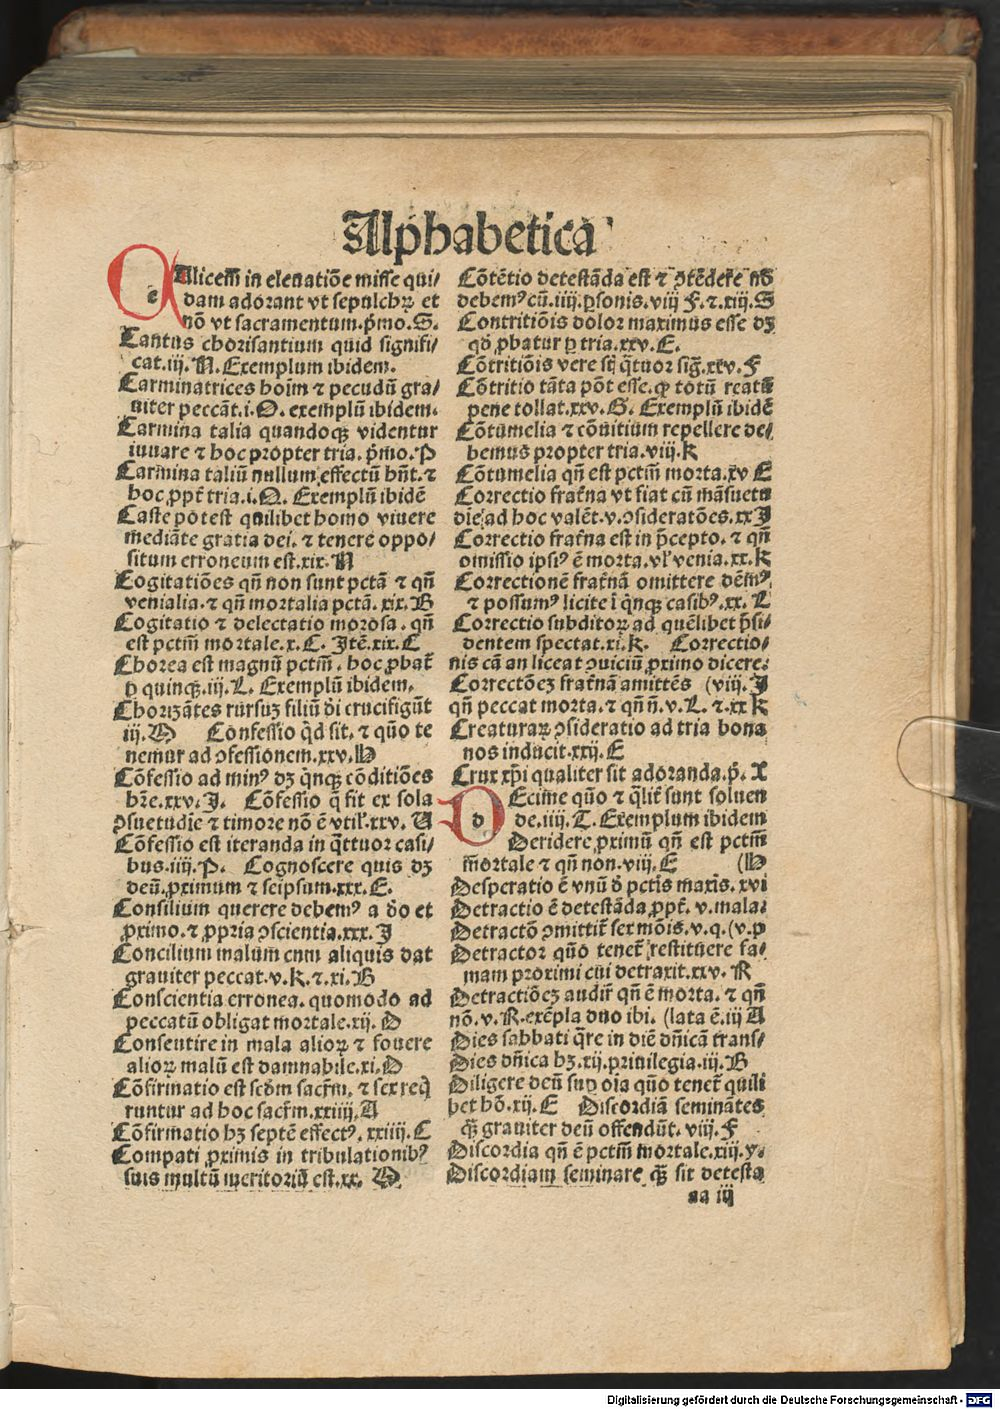 Alphabetica
Alicem in eleuatiōe misse qui/
dam adorant vt sepulchꝝ et
nō vt sacramentum.p̄mo.S.
Cantus chorisantium quid signifi/
cat.iij.N.Exemplum ibidem.
Carminatrices hoīm ⁊ pecudū gra/
uiter peccāt.i.O. exemplū ibidem.
Carmina talia quandoqꝫ videntur
iuuare ⁊ hoc propter tria. p̄mo.P
Carmina taliū nullum effectū hn̄t.⁊
hoc ꝓpt̄ tria.i.O. Exemplū ibidē
Caste potest quilibet homo viuere
mediāte gratia dei. ⁊ tenere oppo/
situm erroneum est.xix.N
Cogitatiōes qn̄ non sunt pctā ⁊ qn̄
venialia.⁊ qn̄ mortalia pctā. xix.B
Cogitatio ⁊ delectatio morosa. qn̄
est pctm̄ mortale.x.C. Itē.xix.C
Chorea est magnū pctm̄. hoc ꝓbat̄
ꝑ quinqꝫ.iij.L. Exemplū ibidem.
Chorizātes rursuꝫ filiū d̄i crucifigūt
iij.M Confessio q̄d sit. ⁊ quō te
nemur ad ꝯfessionem.xxv.H
Cōfessio ad minꝰ dꝫ q̄nqꝫ cōditiōes
hr̄e.xxv.I. Cōfessio q̄ fit ex sola
ꝯsuetudīe ⁊ timore nō ē vtil̄.xxv. U
Cōfessio est iteranda in q̄ttuor casi/
bus.iiij.P. Cognoscere quis dꝫ
deū.ꝓximum ⁊ seipsum.xxx.E.
Consilium querere debemꝰ a d̄o et
ꝓximo.⁊ ꝓpria ꝯscientia.xxx.I
Concilium malum cum aliquis dat
grauiter peccat.v.K.⁊.xi.B
Conscientia erronea. quomodo ad
peccatū obligat mortale.xij. D
Consentire in mala alioꝝ ⁊ fouere
alioꝝ malū est damnabile.xi.D
Cōfirmatio est scd̄m sacr̄m. ⁊ sex req̄
runtur ad hoc sacr̄m.xxiiij.A
Cōfirmatio hꝫ septē effectꝰ. xxiiij.C
Compati ꝓximis in tribulationibꝰ
suis multū meritoriū est.xx. M
Cōtētio detestāda est ⁊ ꝯtēder̄e nō
debemꝰ cū.iiij.ꝑsonis.viij F.⁊.xiij.S
Contritiōis dolor maximus esse dꝫ
qd̄ ꝓbatur ꝑ tria.xxv.E.
Cōtritiōis vere sūt q̄tuor siḡ.xxv.F
Cōtritio tāta pōt esse.qꝙ totū reatū
pene tollat.xxv.G. Exemplū ibidē
Cōtumelia ⁊ cōuitium repellere de/
bemus propter tria.viij.K
Cōtumelia qn̄ est pctm̄ morta.xv E
Correctio frat̄na vt fiat cū māsuetu
dīe/ad hoc valēt.v.ꝯsideratōes.xx I
Correctio frat̄na est in p̄cepto. ⁊ qn̄
omissio ipsiꝰ ē morta. vl̄ venia.xx.K
Correctionē frat̄nā omittere dēmꝰ.
⁊ possumꝰ licite ī q̄nqꝫ casibꝰ.xx. L
Correctio subditoꝝ ad quēlibet p̄si/
dentem spectat.xi.K. Correctio/
nis cā an liceat ꝯuiciū ꝓximo dicere.
Correctōeꝫ frat̄nā amittēs (viij. I
qn̄ peccat morta. ⁊ qn̄ n̄.v.L.⁊.xx K
Creaturaꝝ ꝯsideratio ad tria bona
nos inducit.xxij.E
Crux xp̄i qualiter sit adoranda.p̄. X
DEcime quō ⁊ q̄lit̄ sunt soluen
de.iiij.T. Exemplum ibidem
Deridere ꝓximū qn̄ est pctm̄
mortale ⁊ qn̄ non.viij.E (H
Desperatio ē vnū d̄ pctīs maxīs. xvi
Detractio ē detestāda ꝓpt̄. v.mala.
Detractō ꝯmittit̄ sermōis.v.q.(v.p
Detractor quō tenet̄ restituere fa/
mam proximi cui detraxit.xxv. R
Detractiōeꝫ audir̄ qn̄ ē morta. ⁊ qn̄
nō. v.R.exēpla duo ibi. (lata ē.iij A
Dies sabbati q̄re in diē dn̄icā trans/
Dies dn̄ica hꝫ.xij.priuilegia.iij.B
Diligere deū suꝑ oīa quō tenet̄ quili
bet hō.xij.E Discordiā seminātes
qꝙ grauiter deū offendūt.viij.F
Discordia qn̄ ē pctm̄ mortale.xiij.y.
Discordiam seminare qꝙ sit detesta
aa iij
Digitalisierung gefördert durch die Deutsche Forschungsgemeinschaft - DFG